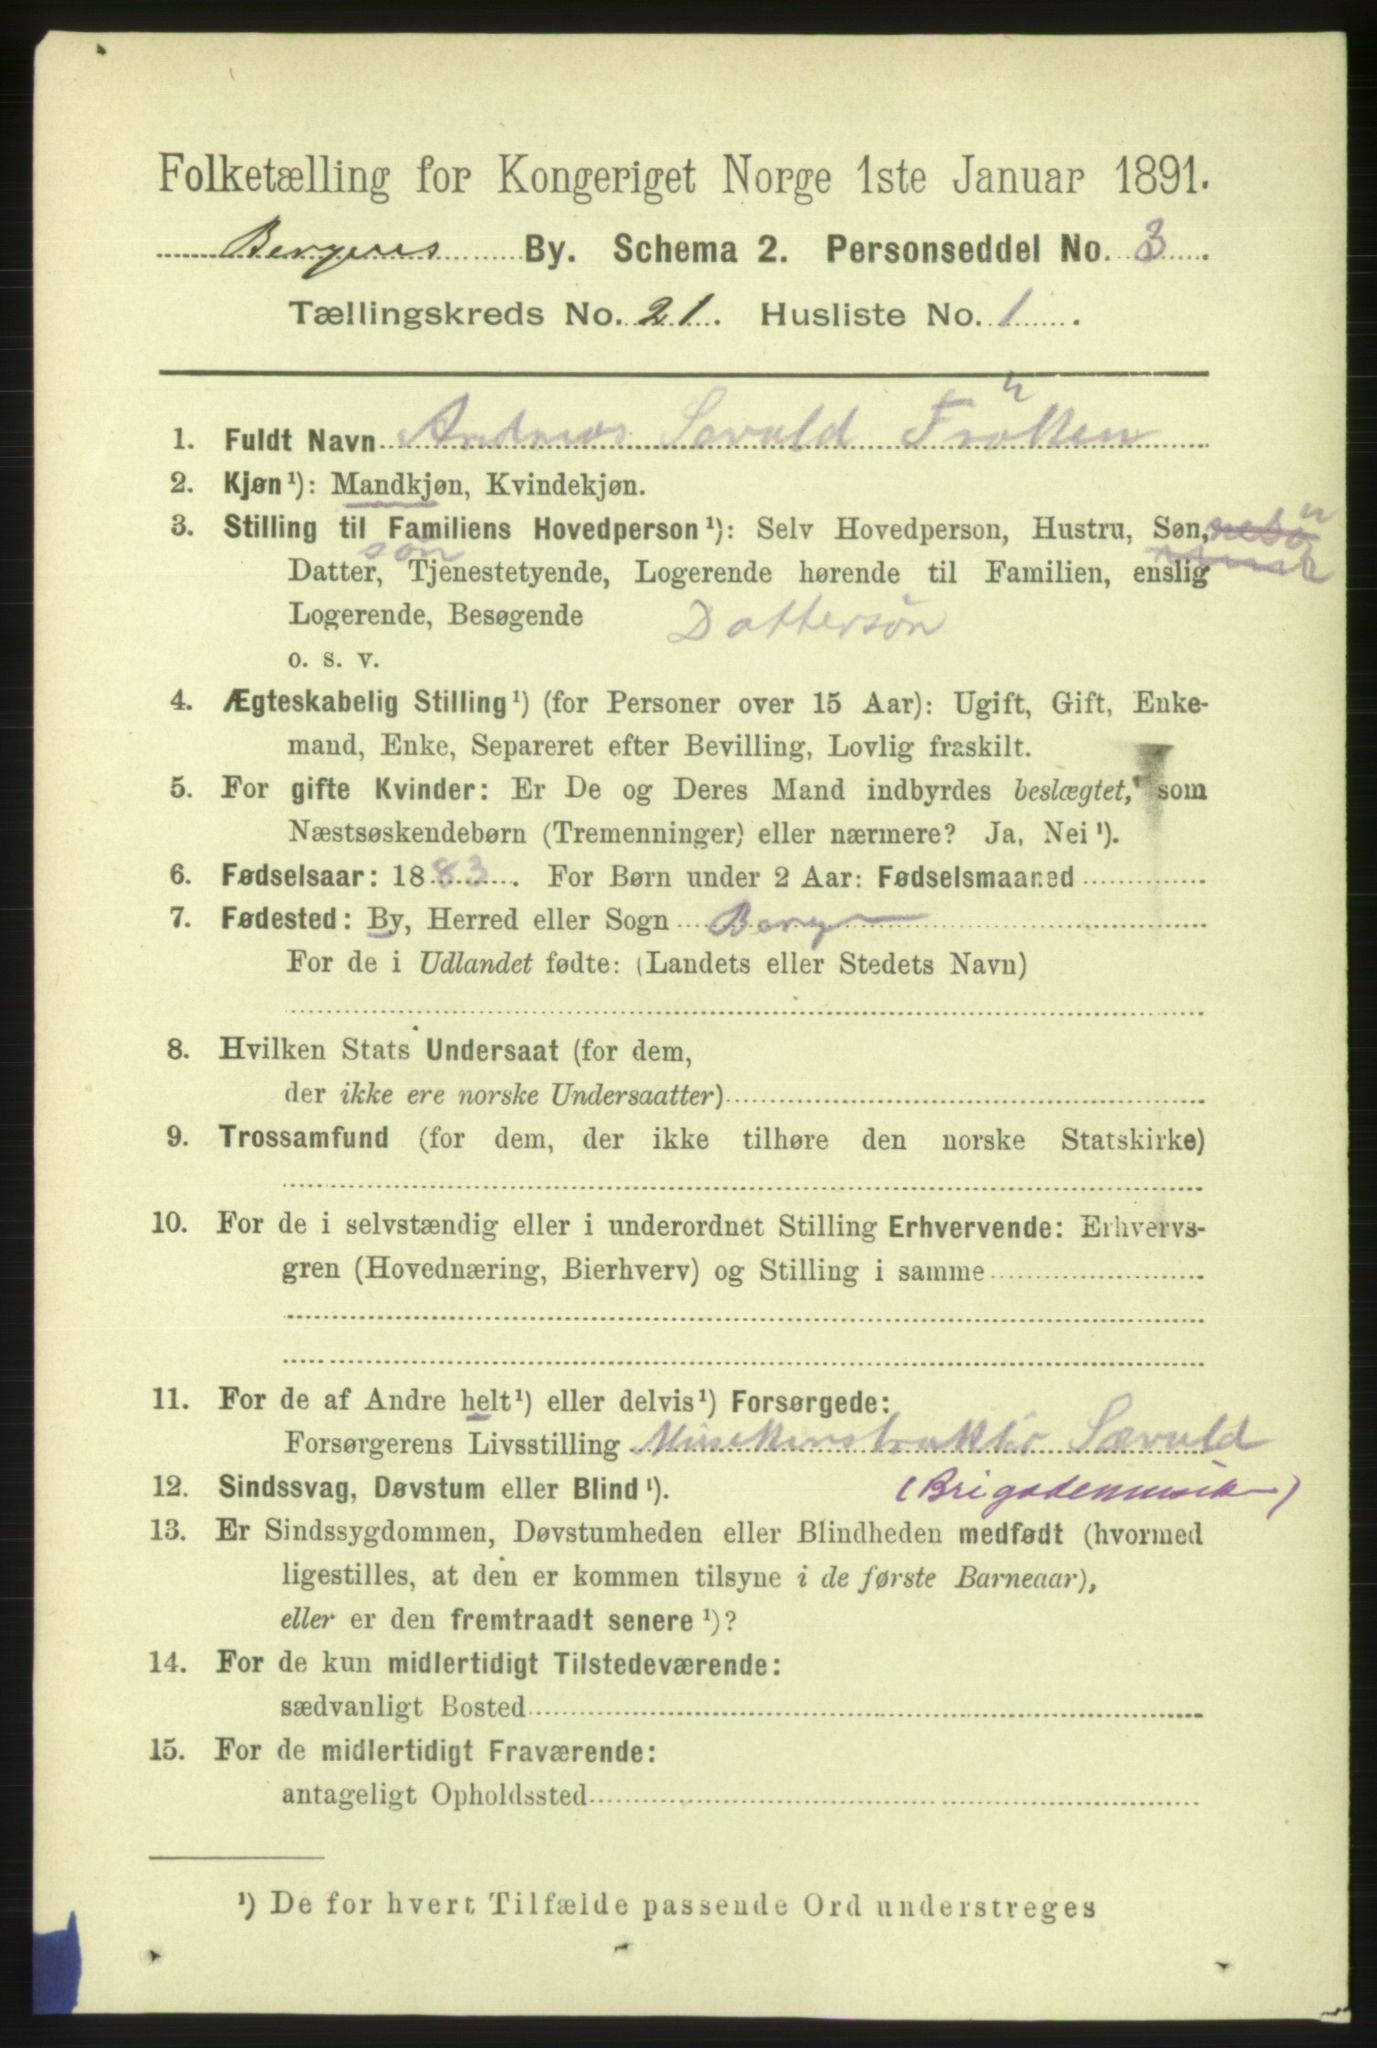 Folketælling for Kongeriget Norge 1ste Januar 1891.
Bergens By. Schema 2. Personseddel No. 3
Tællingskreds No. 21. Husliste No. 1.
1. Fuldt Navn Andreas Sevald
2. Kjøn¹): Mandkjøn, Kvindekjøn.
3. Stilling til Familiens Hovedperson¹): Selv Hovedperson, Hustru, Søn,
søn
Datter, Tjenestetyende, Logerende hørende til Familien, enslig
Logerende, Besøgende Dattersön
o. s. v.
4. Ægteskabelig Stilling¹) (for Personer over 15 Aar): Ugift, Gift, Enke-
mand, Enke, Separeret efter Bevilling, Lovlig fraskilt.
5. For gifte Kvinder: Er De og Deres Mand indbyrdes beslægtet, som
Næstsøskendebørn (Tremenninger) eller nærmere? Ja, Nei¹).
6. Fødselsaar: 1883. For Børn under 2 Aar: Fødselsmaaned
7. Fødested: By, Herred eller Sogn Berg
For de i Udlandet fødte: (Landets eller Stedets Navn)
8. Hvilken Stats Undersaat (for dem,
der ikke ere norske Undersaatter)
9. Trossamfund (for dem, der ikke tilhøre den norske Statskirke)
10. For de i selvstændig eller i underordnet Stilling Erhvervende: Erhvervs-
gren (Hovednæring, Bierhverv) og Stilling i samme
11. For de af Andre helt¹) eller delvis¹) Forsørgede:
Forsørgerens Livsstilling Musikinstruktör Sævald
12. Sindssvag, Døvstum eller Blind¹). (Brigademusik)
13. Er Sindssygdommen, Døvstumheden eller Blindheden medfødt (hvormed
ligestilles, at den er kommen tilsyne i de første Barneaar),
eller er den fremtraadt senere¹)?
14. For de kun midlertidigt Tilstedeværende:
sædvanligt Bosted
15. For de midlertidigt Fraværende:
antageligt Opholdssted
¹) De for hvert Tilfælde passende Ord understreges